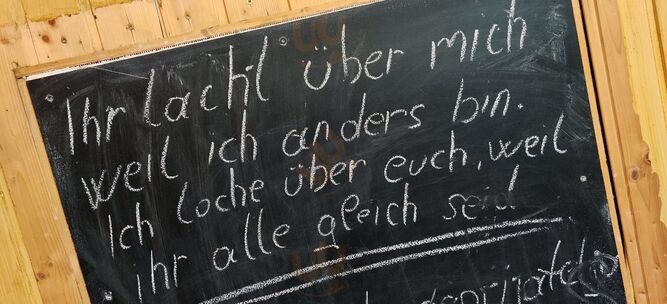 Ihr lacht über mich
weil ich anders bin.
Ich loche über euch, weil
ihr alle gleich seid